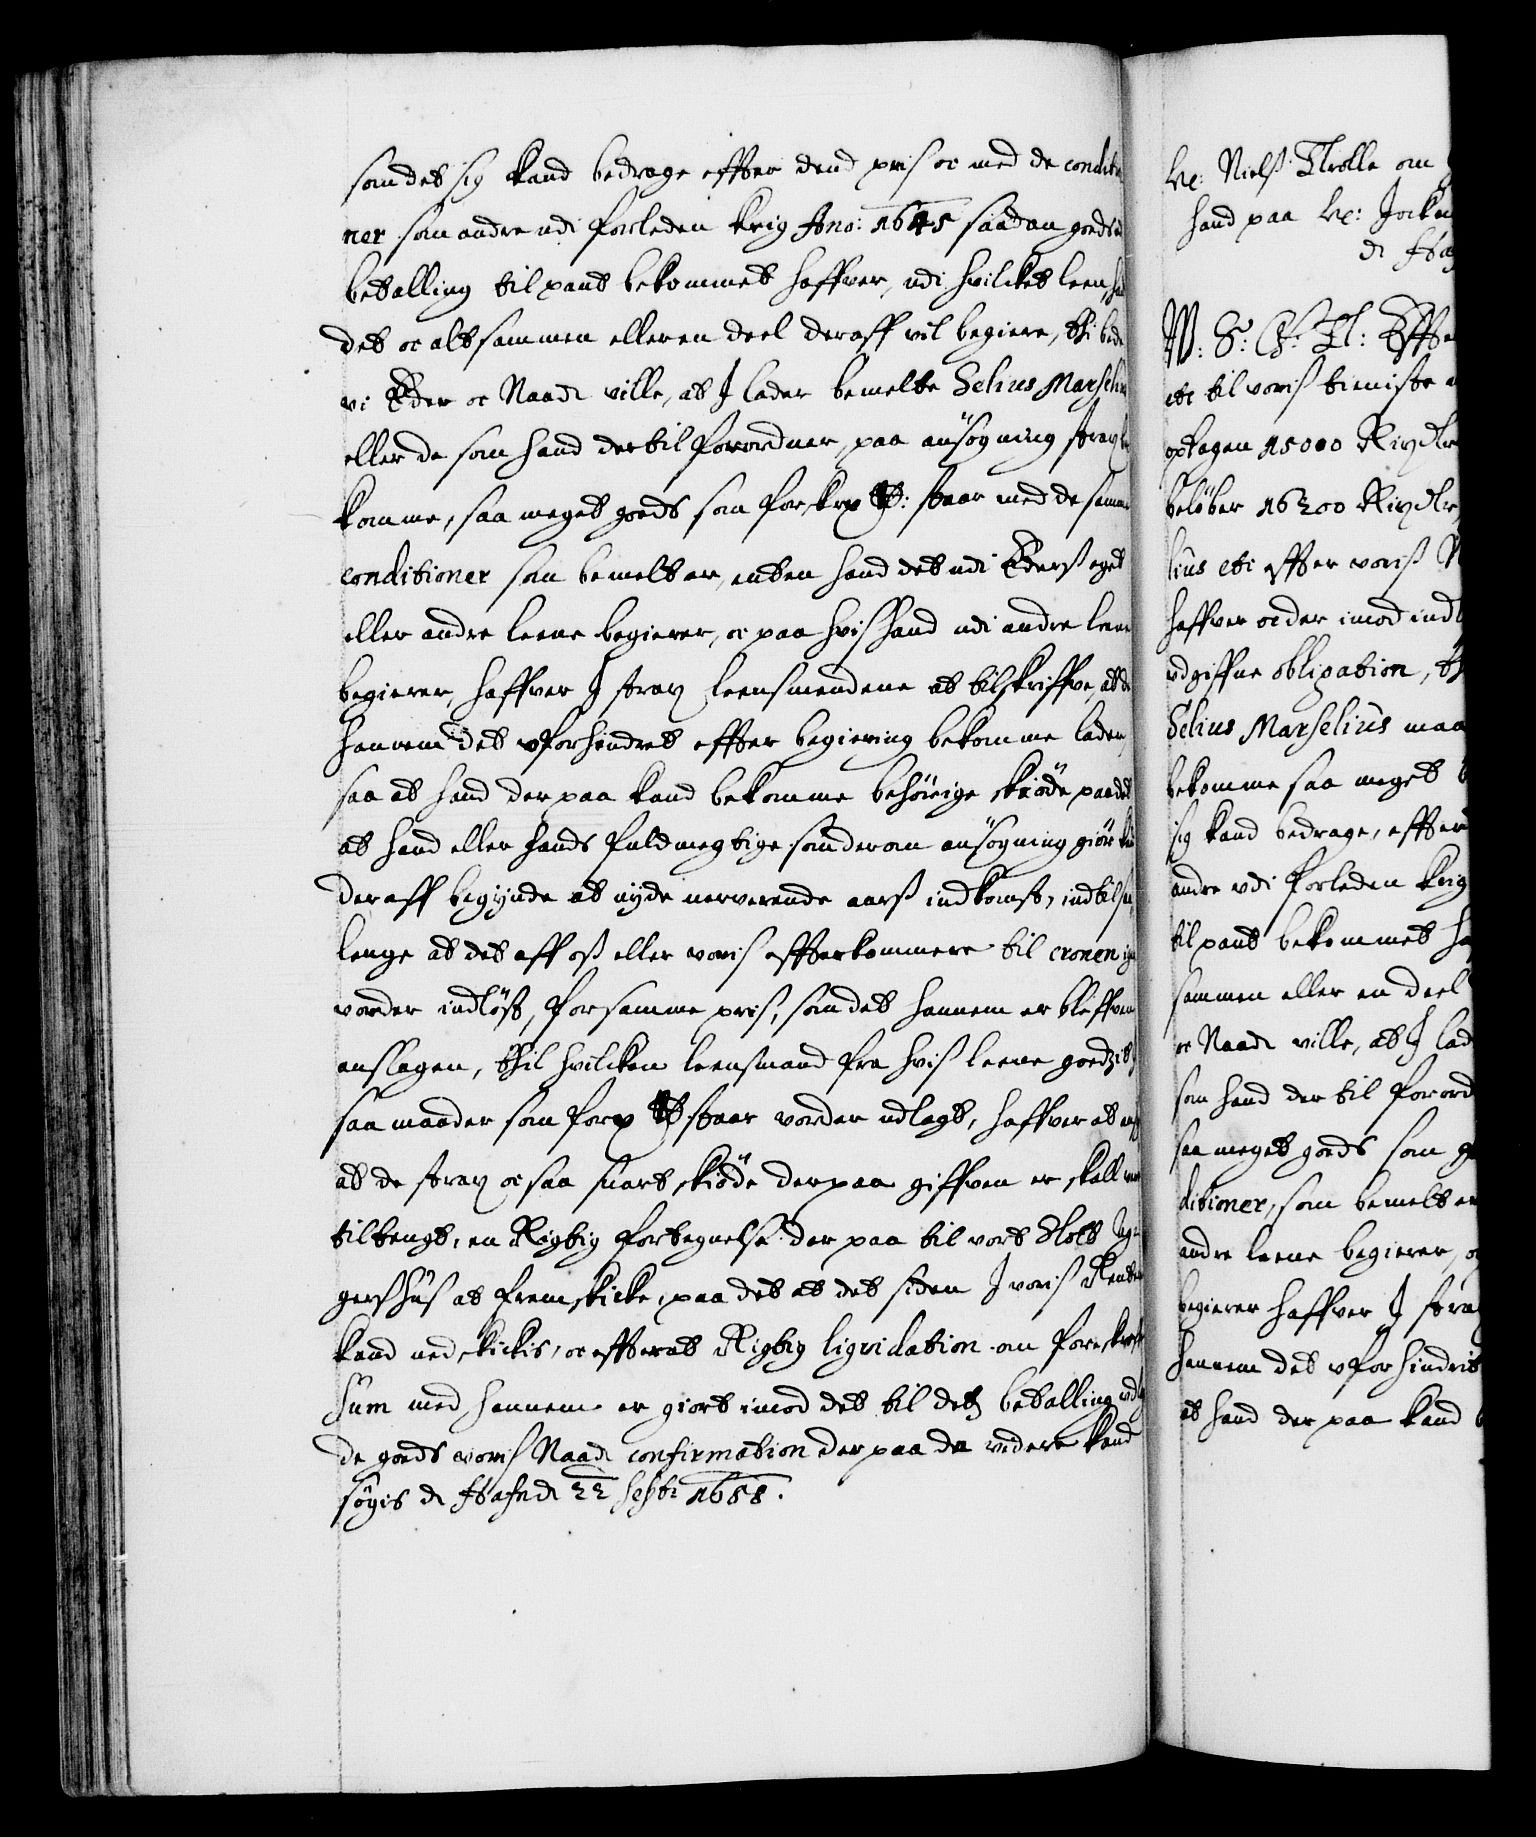 som det sig kand bedrage effter dend pris oc med de conditio
ner som andre udi forleden krig Ano: 1645 saadan goeds i
betalling til pant bekommet haffver, udi hvilcket leen, hand
det oc altsammen eller en deel deraff vil begiere, thi bede
vi Eder oc Naadl ville, at I lader bemelte Selius Marselius
eller de som hand der til forordner, paa ansögning strax be
komme, saa meget goeds som forskr: staar med de samme
conditioner som bemelt er, enten hand det udi Ederss eget
eller andre leene begierer, oc paa hvis hand udi andre leene
begierer, haffver I strax leensmendene at tilskriffve, at de
hannem det uforhindret effter begiering bekomme lader,
saa at hand der paa kand bekomme behörige skiöde paa det
at hand eller hands fuldmegtige som derom ansögning giör kand
deraff begynde at nyde nerverende aars indkomst, indtil saa
lenge at det aff oss eller voris effterkommere til cronen igen
vorder indlöst, for samme pris, som det hannem er bleffven
anslagen, Thil hvilcken leensmand fra hvis leene goedzit
saa maader som for staar vorder udlagt, haffver at
at de strax oc saa snart skiöde der paa giffven er skall vere
tiltengt, en Rigtig fortegnelse der paa til vort Slott Ag
gershus at fremskicke, paa det at det siden I voris Rente
kand nedskickis, oc effter at Rigtig liqvidation om foreskreffne
sum med hannem er giort imod det til detz betalling udlag
de goeds voris Naadl confirmation der paa des videre kand
söges dl Hafn dl 22 Septr 1658.
Ve: Nielss Trolle om
hand paa Ve: Jocku
dl Haf
W: S: G: Tl: Effter
etc til voris tieniste
optagen 15000 Rixdlr
belöber 16200 Rixdlr,
lius etc effter voris N
haffver oc der imod ind
udgiffne obligation, th
Selius Marselius maa
bekomme saa meget
sig kand bedrage, effter
andre udi forleden krig
til pant bekommet ha
sammen eller en deel
oc Naadl ville, at I lad
som hand der til forord
saa meget goeds som
ditioner, som bemelt er
andre leene begierer, o
begierer haffver I strax
hannem det uforhindrit
at hand der paa kand